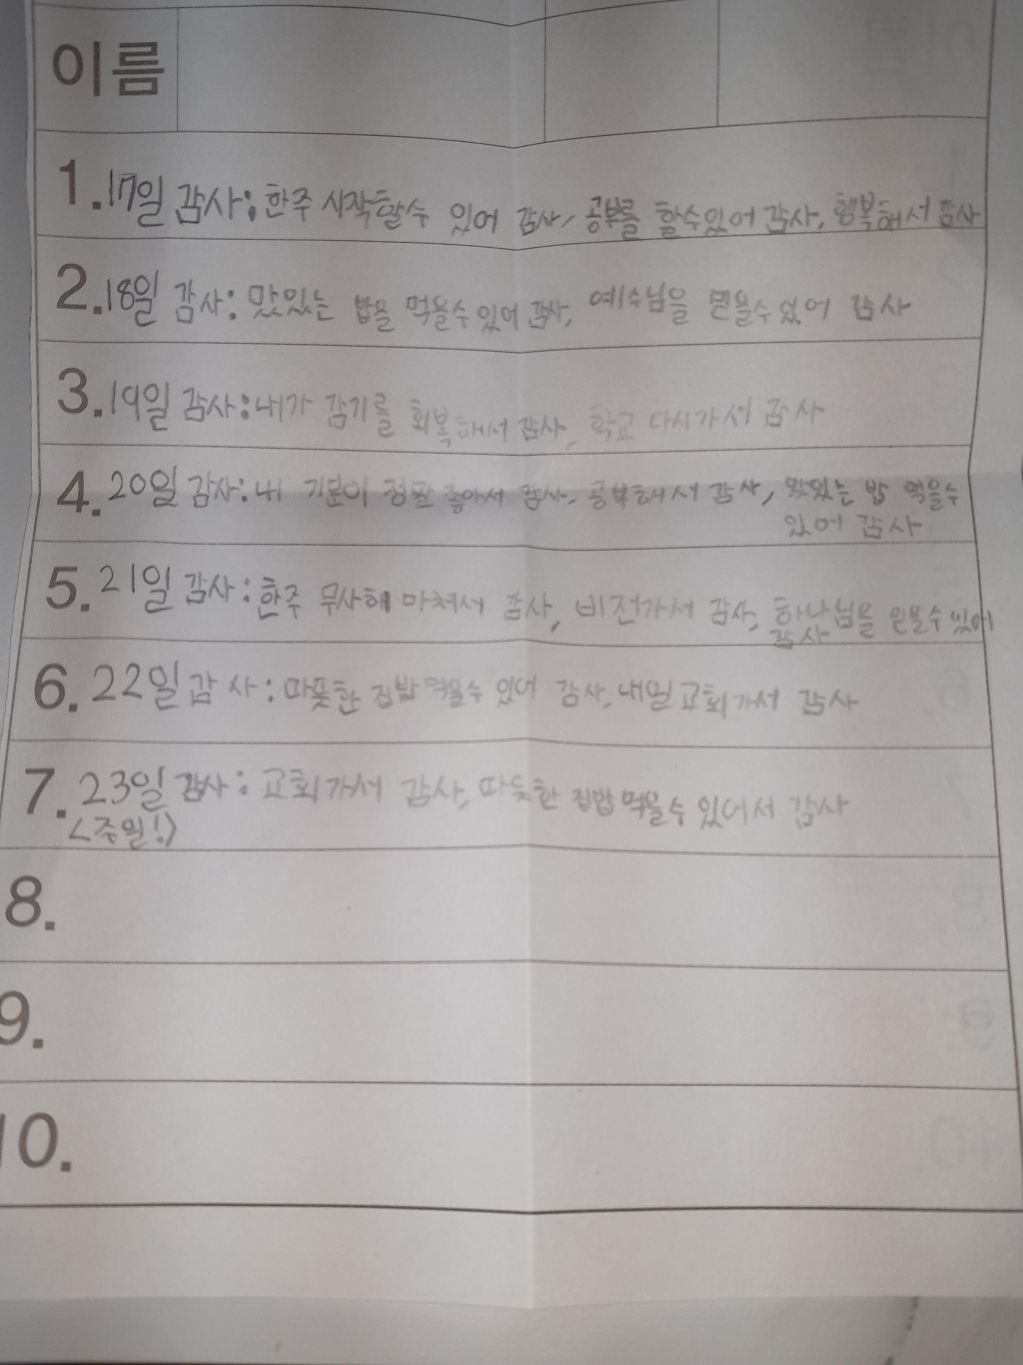 이름
1. 17일 감사: 한주 시작할수 있어 감사, 공부를 할수있어 감사, 행복해서 감사
2. 18일 감사: 맛있는 밥을 먹을수있어 감사, 예수님을 믿을수있어 감사
3. 19일 감사: 내가 감기를 회복해서 감사, 학교 다시가서 감사
4. 20일 감사: 내 기분이 정말 좋아서 감사, 공부해서 감사, 맛있는 밥 먹을수
있어 감사
5. 21일 감사: 한주 무사히 마쳐서 감사, 비전가서 감사, 하나님을 믿을수있어
감사
6. 22일 감사: 따뜻한 집밥먹을수 있어 감사, 내일교회가서 감사
7. 23일 감사: 교회가서 감사, 따듯한 집밥먹을수 있어서 감사
<주일!>
8.
9.
10.